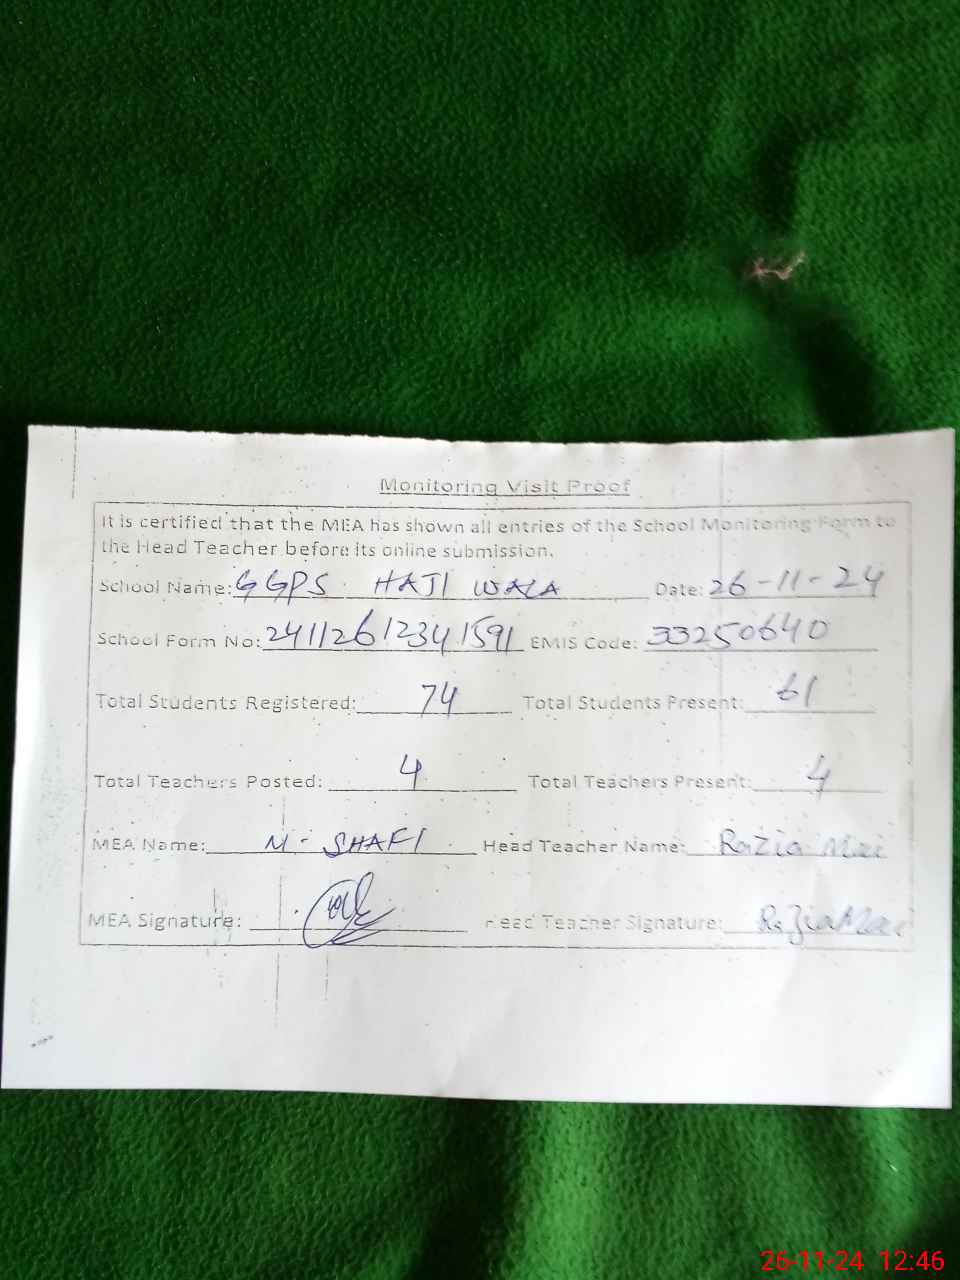 Monitoring Visit Proof
It is certified that the MEA has shown all entries of the School Monitoring Form to
the Head Teacher before its online submission.
School Name: GGPS HAJI WALA Date: 26-11-24
School Form No: 24112612341591 EMIS Code: 33250640
Total Students Registered: 74 Total Students Present: 61
Total Teachers Posted: 4 Total Teachers Present: 4
MEA Name: M-SHAFI Head Teacher Name: Razia Mai
MEA Signature: Head Teacher Signature: Razia Mai
26-11-24 12:46